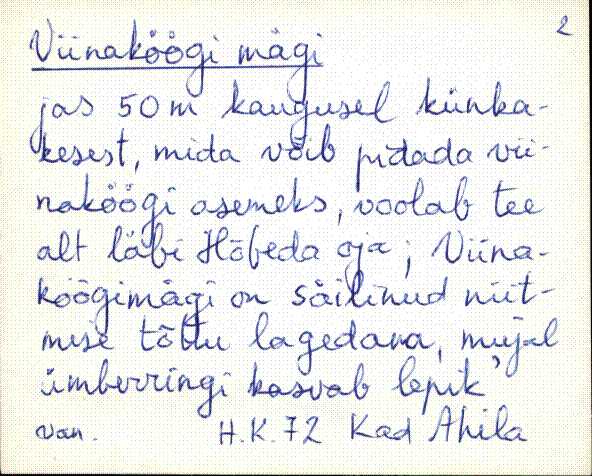 2
Viinaköögi mägi
jas 50 m kaugusel künka-
kesest, mida võib pidada vii-
naköögi asemeks, voolab tee
alt läbi Hõbeda oja; Viina-
köögimägi on säilinud niit-
mise tõttu lagedana, mujal
ümberringi kasvab lepik'
Van. H.K. 72 Kad Ahila